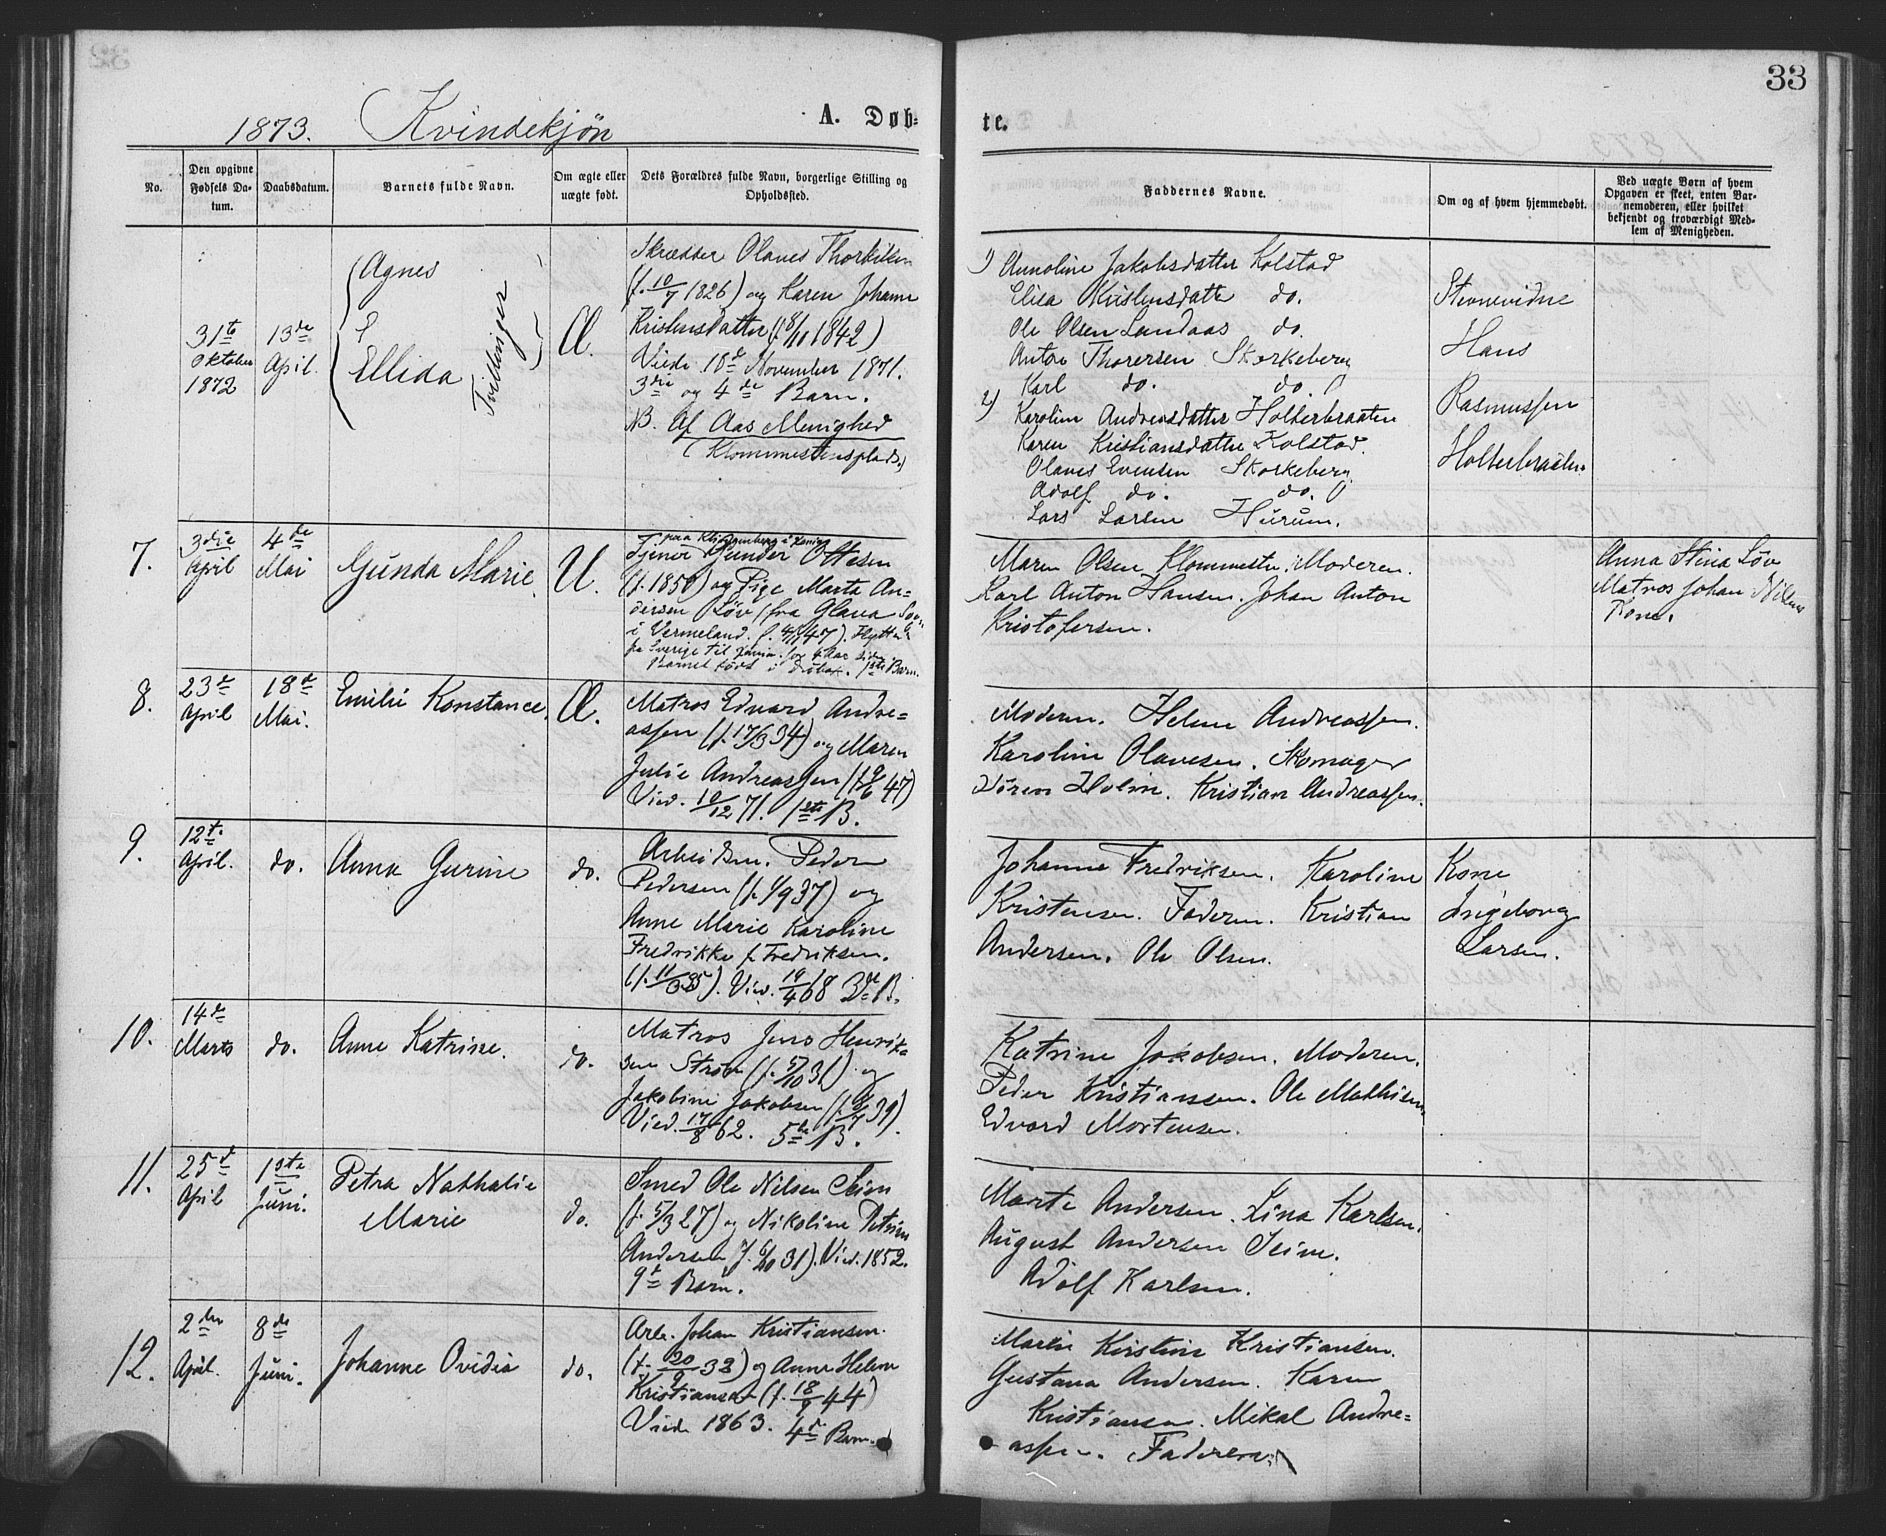 33
1873. Kvindekjøn A. Døb-
te.
No.
Den opgivne Fødsels Da-
tum.
Daabsdatum.
Barnets fulde Navn.
Om ægte eller
uægte født.
Dets Forældres fulde Navn, borgerlige Stilling og
Opholdssted.
Faddernes Navne.
Om og af hvem hjemmedøbt.
Ved uægte Børn af hvem
Opgaven er skeet, enten Bar-
nemoderen, eller hvilket
bekjendt og troværdigt Med-
lem af Menigheden.
31te
Oktober
1872
13de
April.
Agnes
&
Ellida
Tvillinger
Æ.
Skrædder Olaves Thorkilsen
(f. 10/7 1826) og Karen Johanne
Kristensdatter (f. 8/11 1842)
Viede 18de November 1871.
3die og 4de Barn.
NB. Af Aas Menighed
(Klommestensplads.)
1) Annoline Jakobsdatter Kolstad
Elisa Kristensdatter do.
Ole Olsen Landaas do.
Anton Thorersen Skorkeberg
Karl do. do.
2) Karoline Andreasdatter Holterbraaten
Karen Kristiansdatter Kolstad.
Olaves Evensen Skorkeberg
Adolf do. do.
Lars Larsen Hurum.
Stevnevidne
Hans
Rasmussen
Holterbraaten
7.
3die
April
4de
Mai
Gunda Marie.
U.
Tjener Gunder Ottesen
(f. 1850) og Pige Marta An-
dersen Löv (fra Glava Sogn
i Vermeland. f. 4/11 47). Flyttede
fra Sverige til for 4 Aar siden.
Barnet født i Drøbak. 1ste Barn.
Maren Olsen Klommesten. Moderen.
Karl Anton Hansen. Johan Anton
Kristofersen.
Anna Stina Löv
Matros Johan Nilsens
Kone.
8.
23de
April
18de
Mai.
Emilie Konstance.
Æ.
Matros Edvard Andre-
assen (f. 17/3 34) og Maren
Julie Andreassen (f. 9/6 47)
Vied. 10/12 71. 1ste B.
Moderen. Helene Andreassen.
Karoline Olavesen. Skomager
Søren Holm. Kristian Andreassen.
9.
12te
April.
do.
Anna Gurine
do.
Arbeidsm. Peder
Pedersen (f. 1/9 37) og
Anne Marie Karoline
Fredrikke f. Fredriksen.
(f. 11/3 35). Vied. 19/4 68 3de B.
Johanne Fredriksen. Karoline
Kristensen. Faderen. Kristian
Andersen. Ole Olsen.
Kone
Ingeborg
Larsen.
10.
14de
Marts
do.
Anne Katrine.
do.
Matros Jens Henrik-
sen Strøm (f. 5/10 31) og
Jakobine Jakobsen (f. 6/7 39).
Vied. 17/8 62. 5te B.
Katrine Jakobsen. Moderen.
Peder Kristianssen. Ole Mathisen
Edvard Mortensen.
11.
25de
April
1ste
Juni.
Petra Nathalie
Marie
do.
Smed Ole Nilsen Seim
(f. 5/3 27) og Nikoline Petrine
Andersen f. 6/10 31). Vied. 1852.
9de Barn.
Marte Andersen. Lina Karlsen.
August Andersen Seim.
Adolf Karlsen.
12.
2den
April.
8de
Juni.
Johanne Ovidia
do.
Arb. Johan Kristiansen.
(f. 20/9 33) og Anne Helene
Kristiansen (f. 18/9 44)
Viede 1863. 4de Barn.
Martin Kirstine Kristiansen.
Gustava Andersen. Karen
Kristiansen. Mikal Andre-
assen. Faderen.